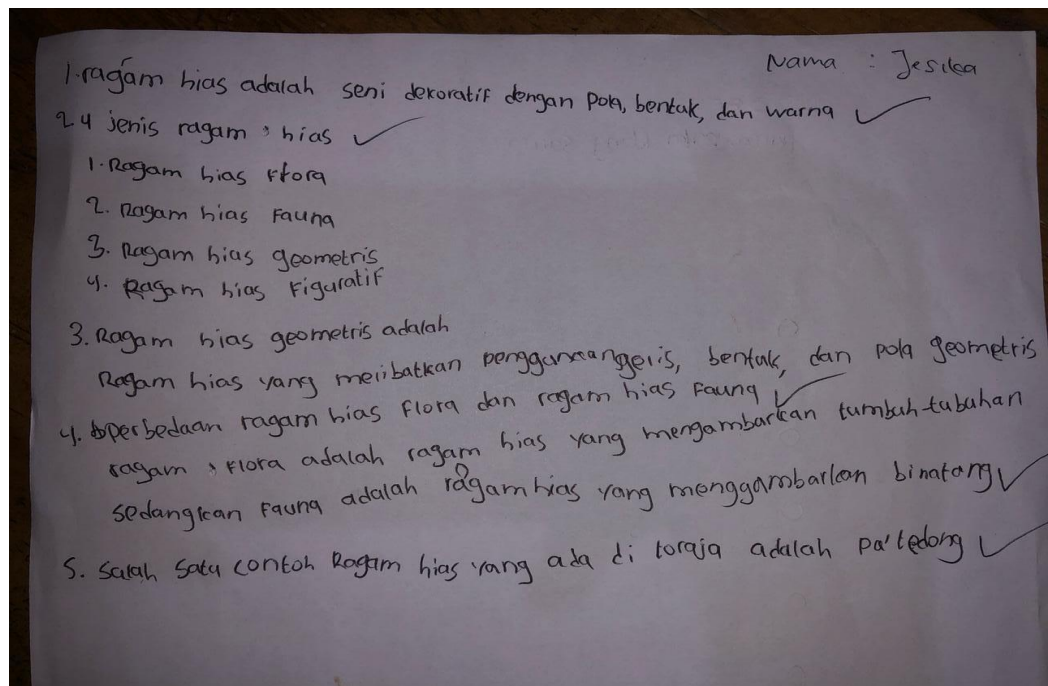 Nama : Jesika
1. ragam hias adalah seni dekoratif dengan pola, bentuk, dan warna
2. 4 jenis ragam hias
1. Ragam hias Flora
2. Ragam hias Fauna
3. Ragam hias geometris
4. Ragam hias Figuratif
3. Ragam hias geometris adalah
Ragam hias yang melibatkan bentuk, dan pola geometris
4. perbedaan ragam hias flora dan ragam hias Fauna
ragam flora adalah ragam hias yang mengambarkan tumbuh-tubuhan
sedangkan Fauna adalah ragam hias yang menggambarkan binatang
5. Salah satu contoh Ragam hias yang ada di toraja adalah pa'tedong